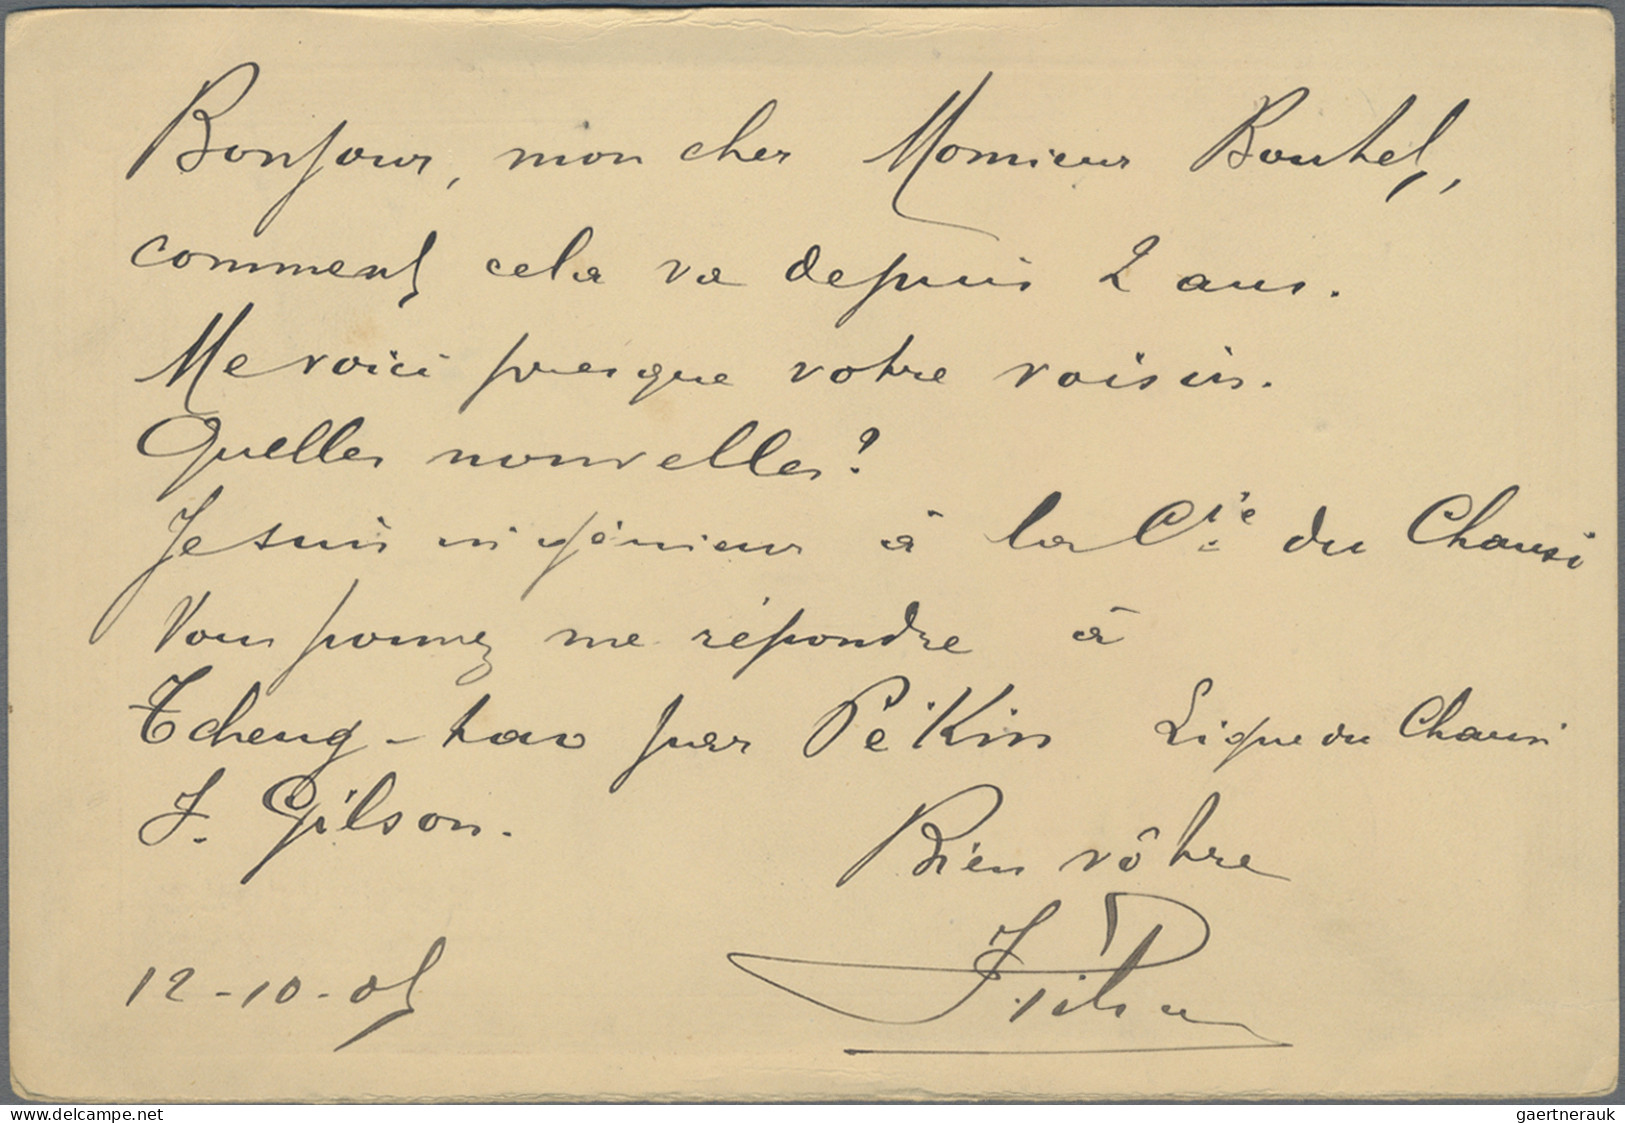 Bonjour, mon cher Monsieur Bouhet,
comment cela va depuis 2 ans.
Me voici presque votre voisin.
Quelles nouvelles?
Je suis ingénieur à la Cie du Chansi
Vous pourrez me répondre à
Tcheng-tao par PéKin Ligne du Chansi
J. Gilson.
Bien vôtre
J. Gilson
12-10-05
www.delcampe.net
gaertnerauk